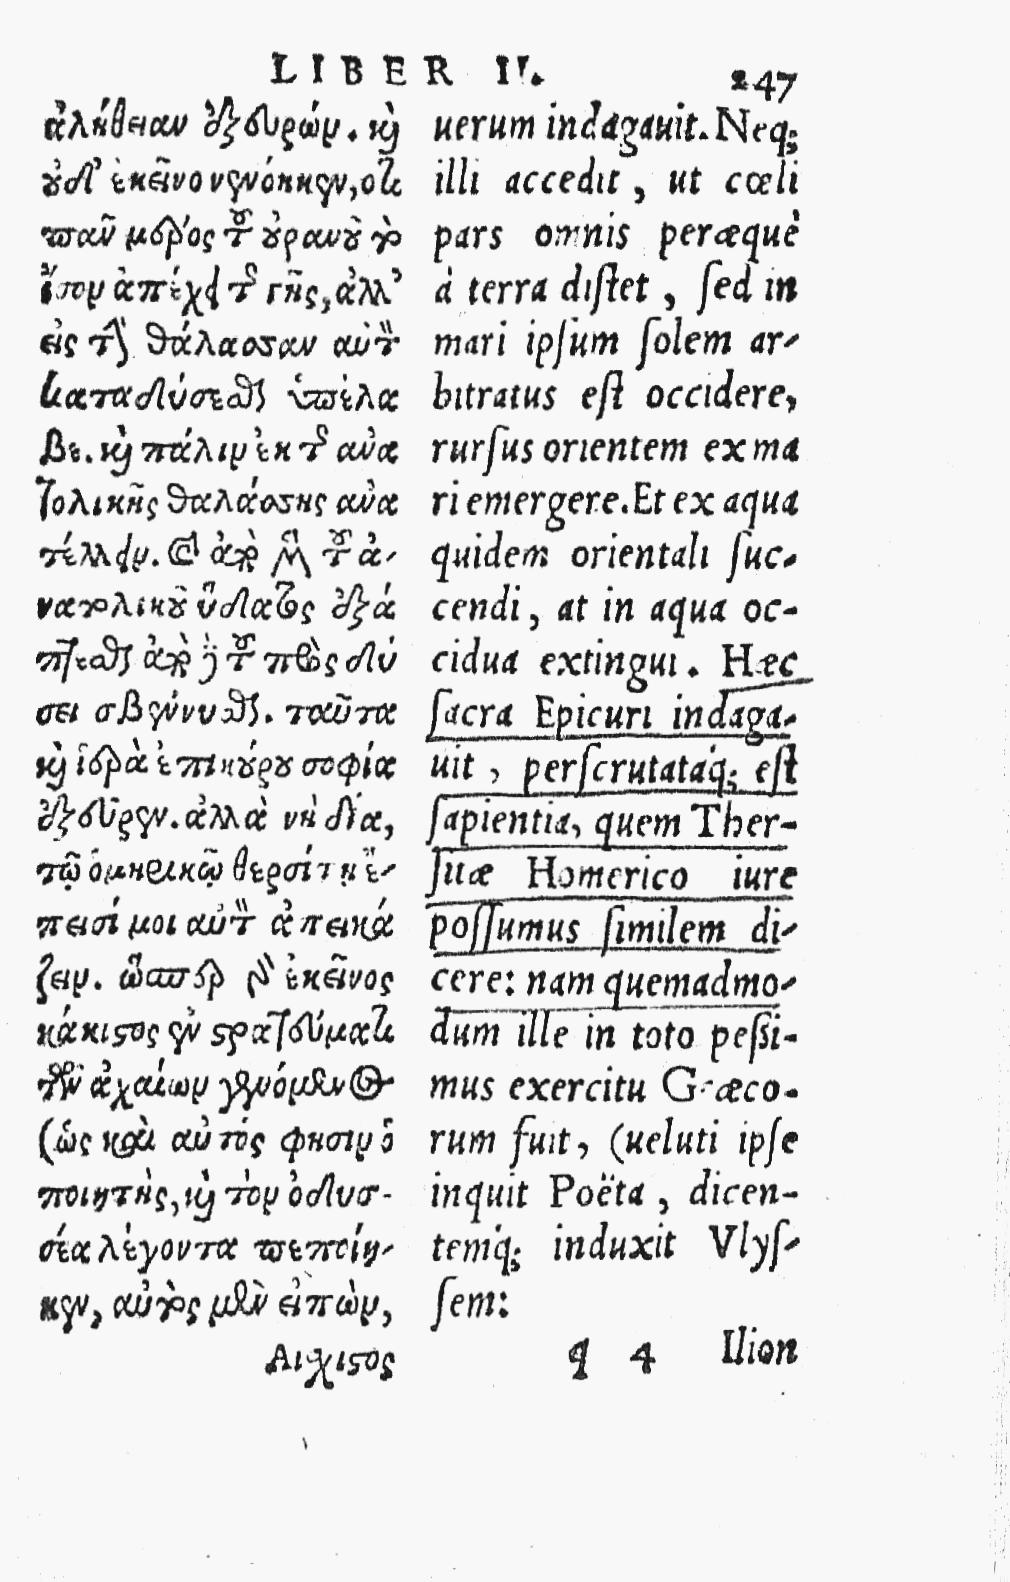 LIBER II.
247
ἀλήθειαν ἐξευρών. καὶ
οὐδ' ἐκεῖνο νενόηκεν, ὅτι
πᾶν μέρος τοῦ οὐρανοῦ τὸ
ἴσον ἀπέχει τῆς γῆς, ἀλλ'
εἰς τὴν θάλασσαν αὐτὸν
καταδύσεσθαι ὑπέλα
βε. καὶ πάλιν ἐκ τῆς ἀνα
τολικῆς θαλάσσης ἀνα
τέλλειν. καὶ ἀπὸ μὲν τοῦ ἀ-
νατολικοῦ ὕδατος ἐξά
πτεσθαι ἀπὸ δὲ τοῦ πρὸς δύ
σει σβέννυσθαι. ταῦτα
καὶ ἱερὰ ἐπικούρου σοφία
ἐξεῦρεν. ἀλλὰ νὴ δία,
τῷ ὁμηρικῷ θερσίτῃ ἔ-
πεισί μοι αὐτὸν ἀπεικά
ζειν. ὥσπερ γὰρ ἐκεῖνος
κάκιστος ἐν στρατεύματι
τῶν ἀχαίων γενόμενος
(ὡς καὶ αὐτός φησιν ὁ
ποιητὴς, καὶ τὸν ὀδυσ-
σέα λέγοντα πεποίη-
κεν, αὐτὸς μὲν εἰπὼν,
Αιχιστος
uerum indagauit. Neq;
illi accedit, ut cœli
pars omnis peræquè
à terra distet, sed in
mari ipsum solem ar-
bitratus est occidere,
rursus orientem ex ma
ri emergere. Et ex aqua
quidem orientali suc-
cendi, at in aqua oc-
cidua extingui. Hæc
sacra Epicuri indaga-
uit, perscrutatáq; est
sapientia, quem Ther-
sitæ Homerico iure
possumus similem di-
cere: nam quemadmo-
dum ille in toto pessi-
mus exercitu Græco-
rum fuit, (ueluti ipse
inquit Poëta, dicen-
temq́; induxit Vlys-
sem:
q 4 Ilion